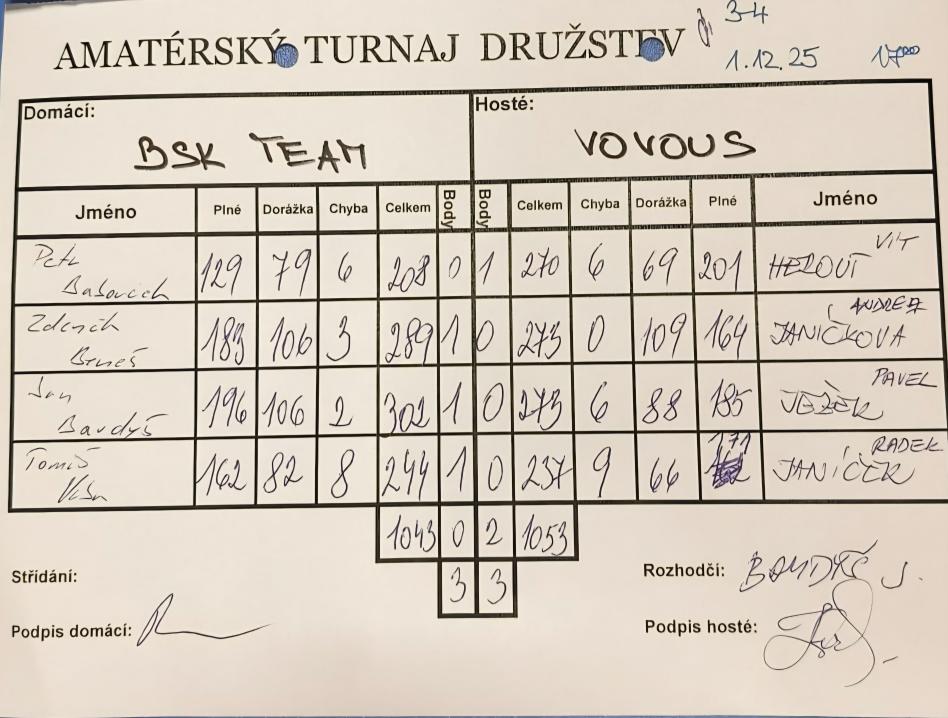 3-4
AMATÉRSKÝ TURNAJ DRUŽSTEV
1.12.25 17⁰⁰
Domácí: Hosté:
BSK TEAM VOVOUS
Jméno Plné Dorážka Chyba Celkem Body Body Celkem Chyba Dorážka Plné Jméno
Petr 129 79 6 208 0 1 270 6 69 201 HEROUT VIT
Zdeněk 183 106 3 289 1 0 273 0 109 164 JANÍČKOVA ANDREA
Jan Bardyš 196 106 2 302 1 0 273 6 88 185 JEŽEK PAVEL
Tomáš 162 82 8 244 1 0 237 9 66 171 JANÍČEK RADEK
1043 0 2 1053
3 3
Střídání:
Rozhodčí: J.
Podpis domácí:
Podpis hosté: